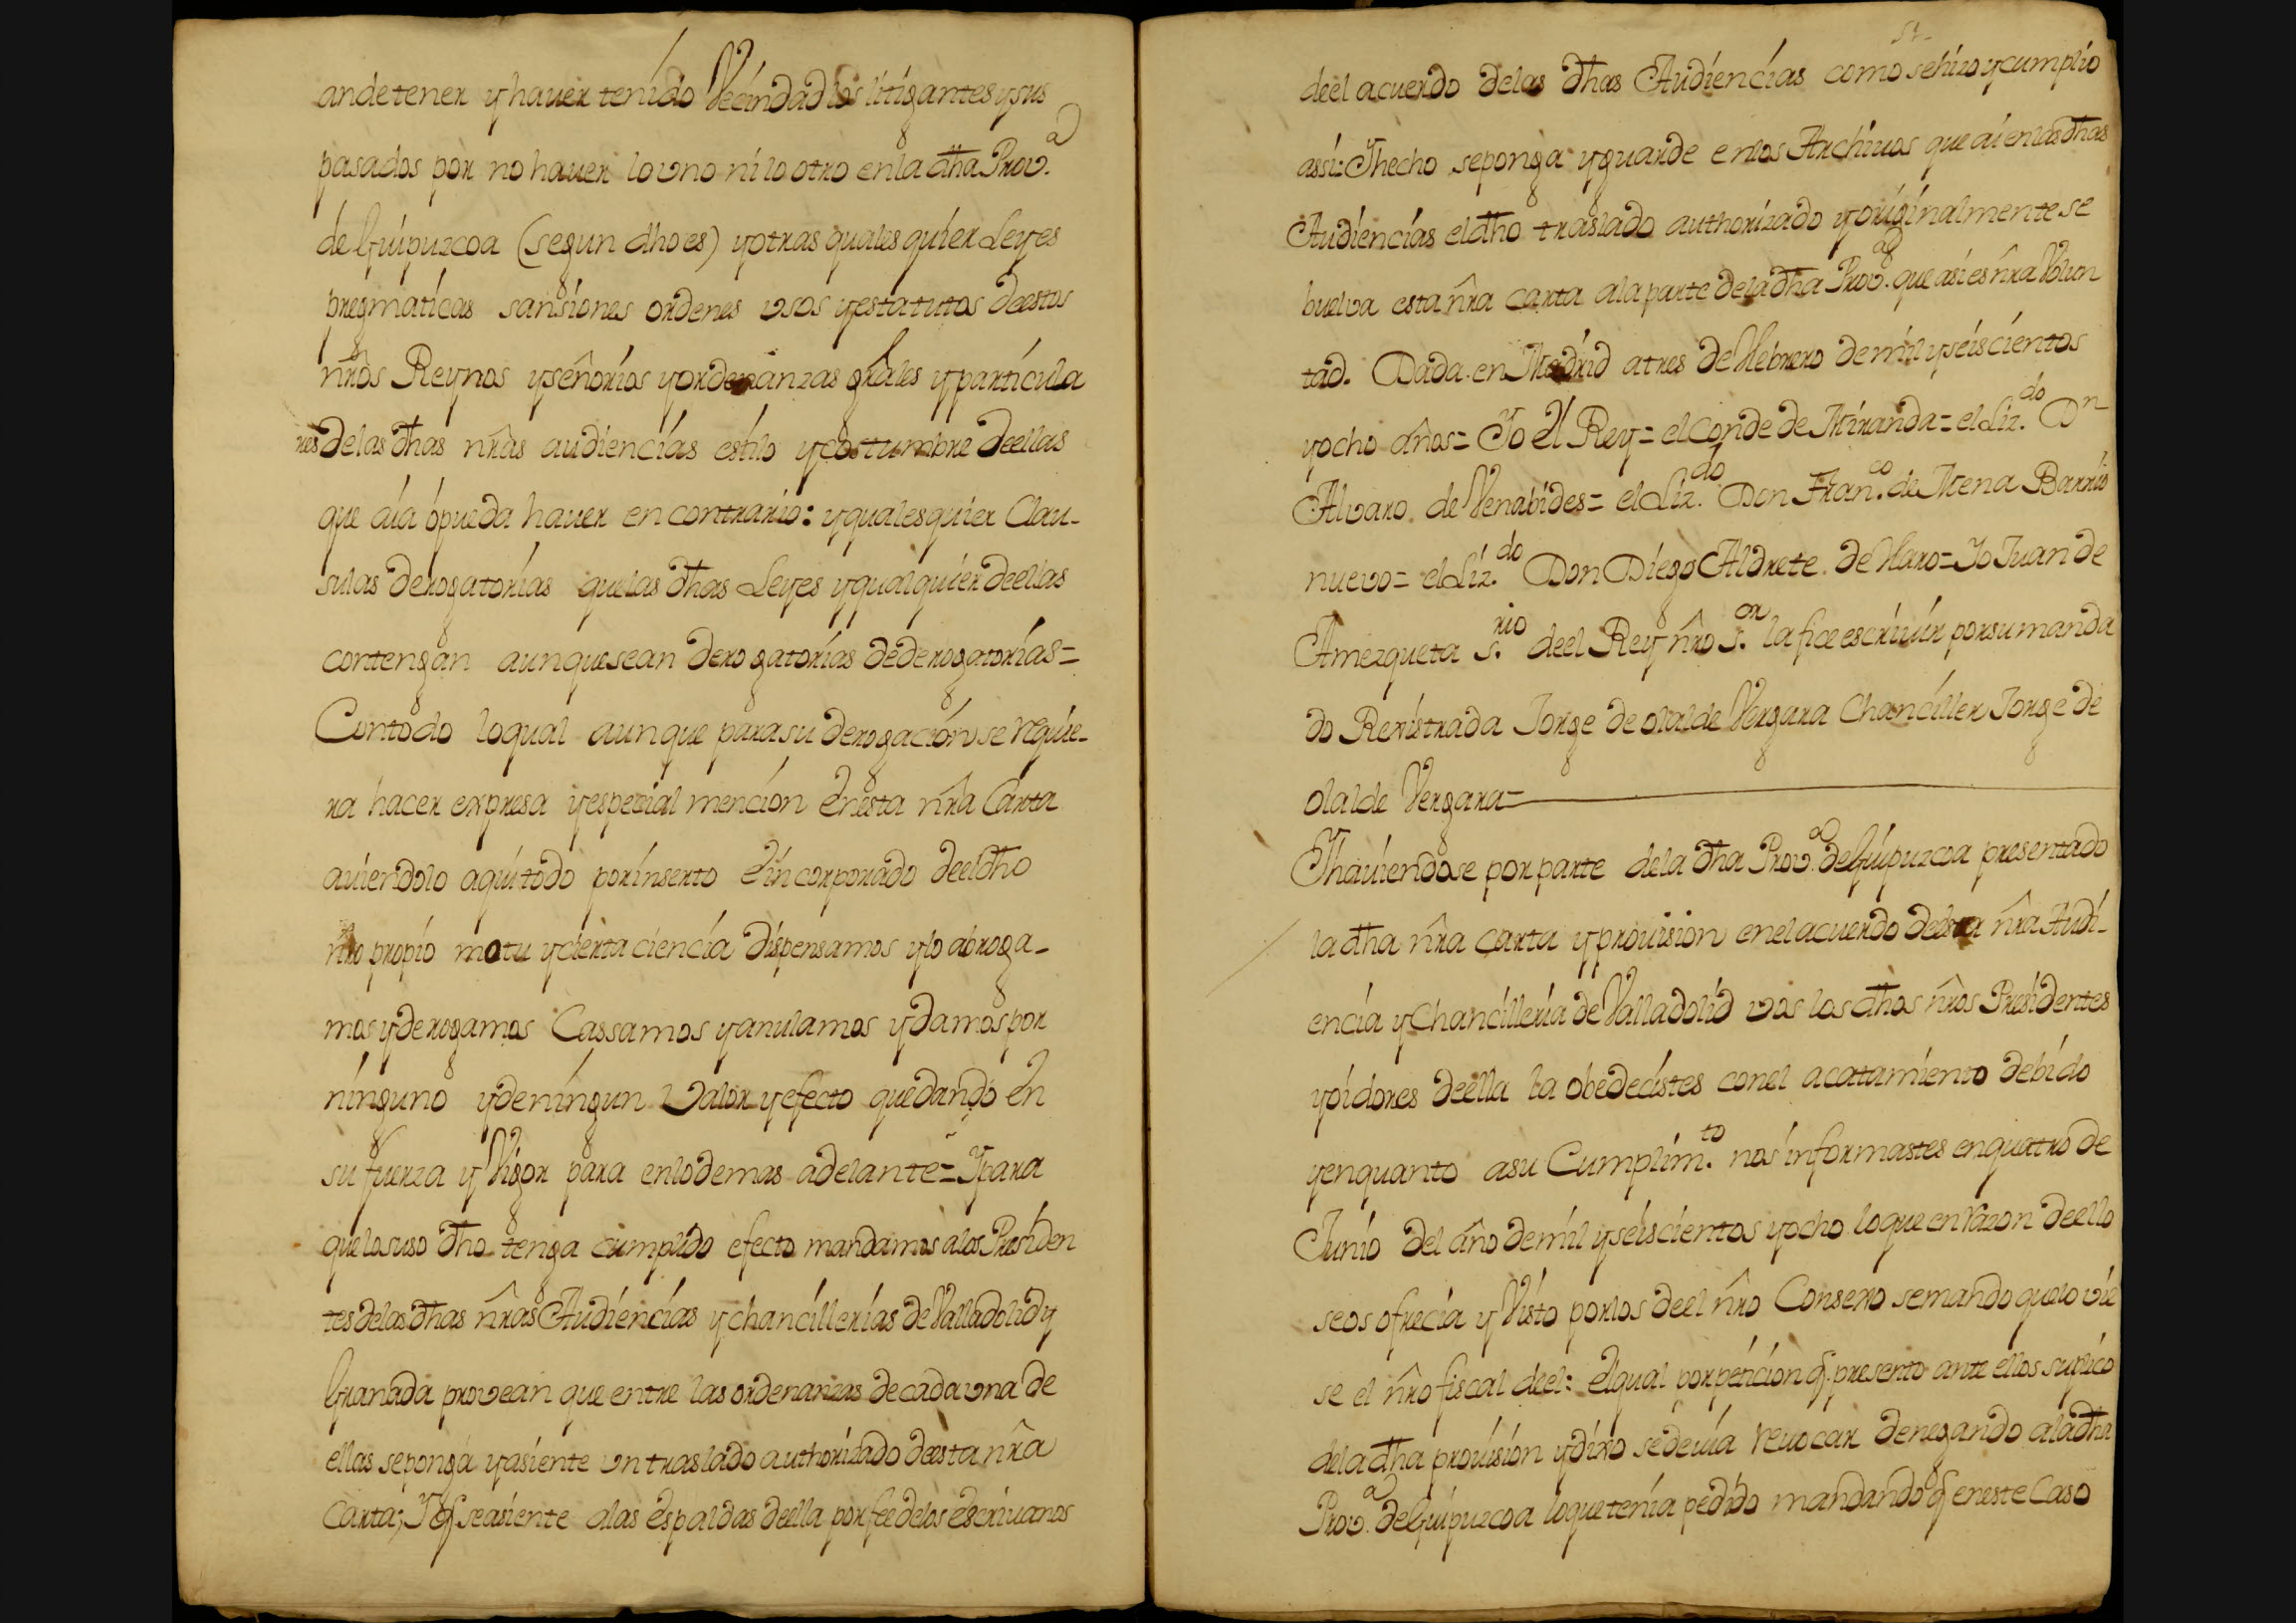 an de tener y hauer tenido Vecindad los litigantes y sus
pasados por no hauer lo vno ni lo otro en la dha Prov.a
de Guipuzcoa (segun dho es) y otras quales quier Leyes
pregmaticas sansiones ordenes vsos y estatutos de estos
nros Reynos y señorios y ordenanzas grâles y particula
res de las dhas nrâs audiencias estilo y costumbre de ellas
que aia ó pueda hauer en contrario: y quales quier Clau-
sulas derogatorias que las dhas Leyes y qual quier de ellas
contengan aunque sean derogatorias de derogatorias=
Con todo lo qual aun que para su derogacion se requie-
ra hacer expresa y especial mencion En esta nrâ Carta
auiendolo aqui todo por inserto E incorporado de el dho
nro propio motu y cierta ciencia dispensamos y lo abroga-
mos y derogamos Cassamos y anulamos y damos por
ninguno y de ningun Valor y efecto quedando En
su fuerza y Vigor para en lo demas adelante= Y para
que lo suso dho tenga cumplido efecto mandamos a los Presiden
tes de las dhas nrâs Audiencias y chancillerias de Valladolid y
Granada provean que entre las ordenanzas de cada vna de
ellas se ponga y asiente vn traslado authorizado de esta nrâ
Carta; Y q se asiente a las Espaldas de ella por fee de los Escriuanos
de el acuerdo de las dhas Audiencias como se hizo y cumplio
assi: Y hecho se ponga y guarde en los Archiuos que ai en las dhas
Audiencias el dho traslado authorizado y originalmente se
buelva esta nrâ carta a la parte de la dha Prov.a que asi es nrâ Volun
tad. Dada en Madrid a tres de Hebrero de mil y seis cientos
y ocho años= Yo El Rey= el Conde de Miranda= el Liz.do Dn
Alvaro de Venabides= el Liz.do Don Fran.co de Mena Barrio
nuevo= el Liz.do Don Diego Aldrete de Haro= Yo Juan de
Amezqueta s.rio de el Rey nrô s.or la fice escriuir por su manda
do Rexistrada Jorge de olalde Vergara Chanciller Jorge de
olalde Vergara=
Y hauiendose por parte de la dha Prov.a de Guipuzcoa presentado
la dha nrâ carta y prouision en el acuerdo de esta nrâ Audi-
encia y Chancilleria de Valladolid vos los dhos nrôs Presidentes
y oidores de ella la obedecistes con el acatamiento debido
y en quanto a su Cumplim.to nos informastes en quatro de
Junio del año de mil y seis cientos y ocho lo que en razon de ello
se os ofrecia y Visto por los de el nrô Consexo se mando que lo vie
se el nrô fiscal de el: El qual por peticion q presento ante ellos suplico
de la dha prouision y dixo se deuia reuocar denegando a la dha
Prov.a de Guipuzcoa lo que tenia pedido mandando q en este Caso